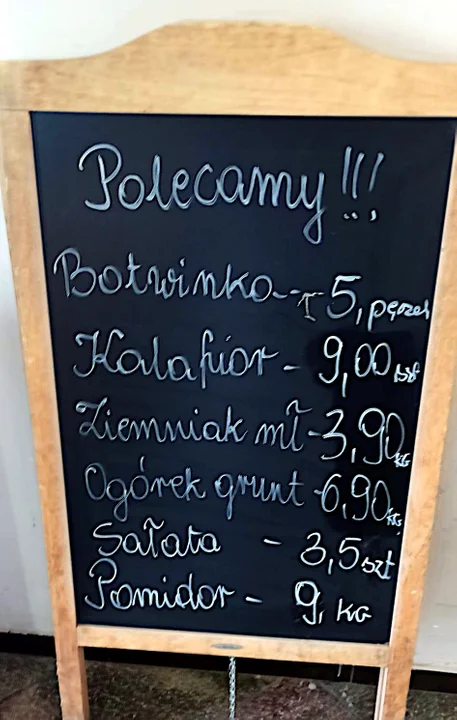 Polecamy!!!
Botwinka - 5, pęczek
Kalafior - 9,00 szt
Ziemniak mł - 3,90 kg
Ogórek grunt - 6,90 kg
Sałata - 3,5 szt
Pomidor - 9, kg